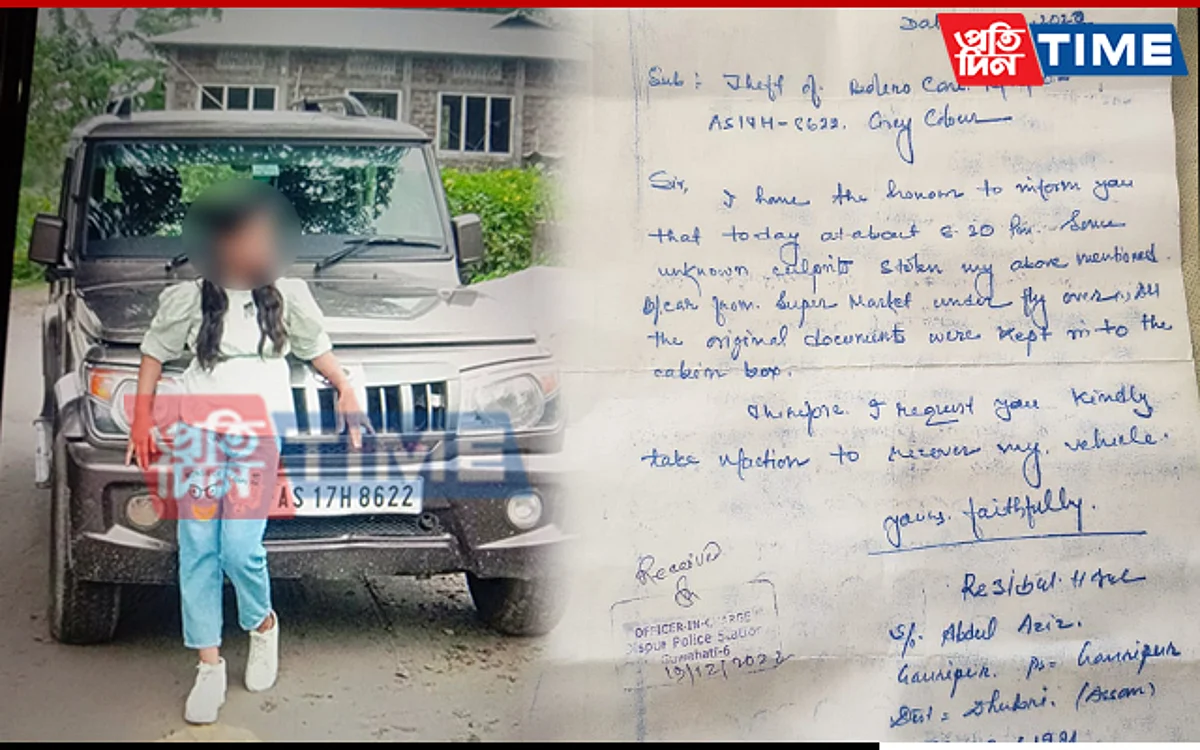 প্রতি
দিন
TIME
প্রতি
দিন
TIME
AS 17H 8622
Sub: Theft of
AS17H-8622. Grey Colour
Sir,
I have the honour to inform you
that today at about 20 Pm. Some
unknown culprits stolen my above mentioned
car from Super Market under fly over, All
the original documents were kept in to the
cabin box.
Therefore I request you kindly
take action to recover my vehicle.
yours faithfully.
Received
OFFICER-IN-CHARGE
Dispur Police Station
Guwahati-6
S/o. Abdul Aziz.
Gauripur. Ps= Gauripur
Dist = Dhubri. (Assam)